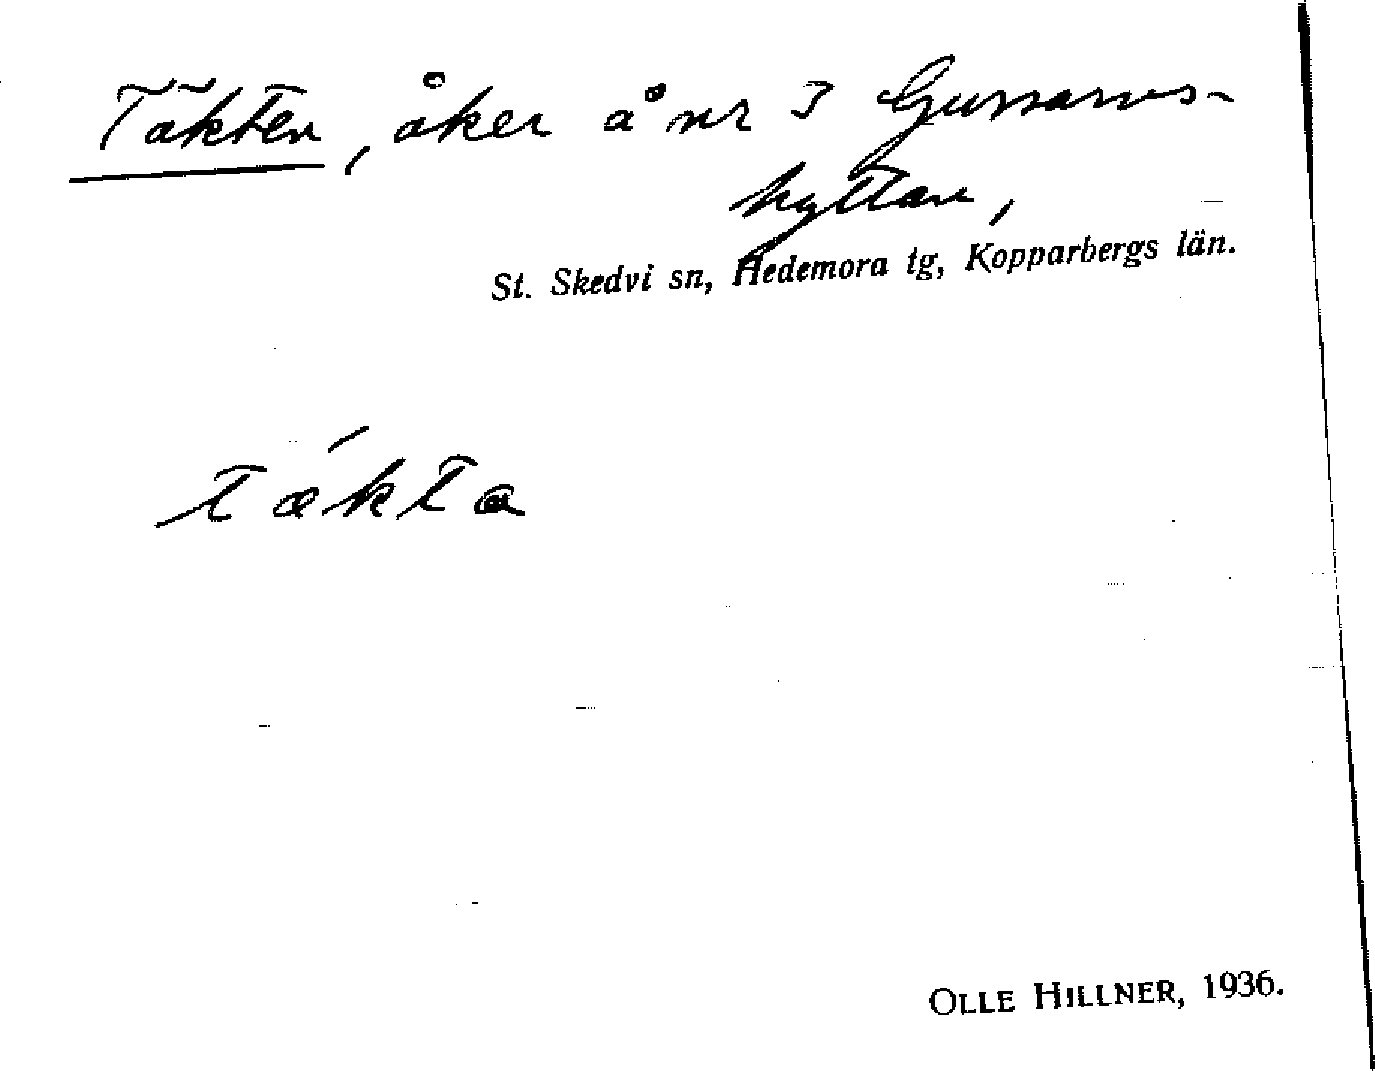 Täkten, åker å nr 3 Gussarvs-
hyttan,
St. Skedvi sn, Hedemora tg, Kopparbergs län.
tǽkta
OLLE HILLNER, 1936.